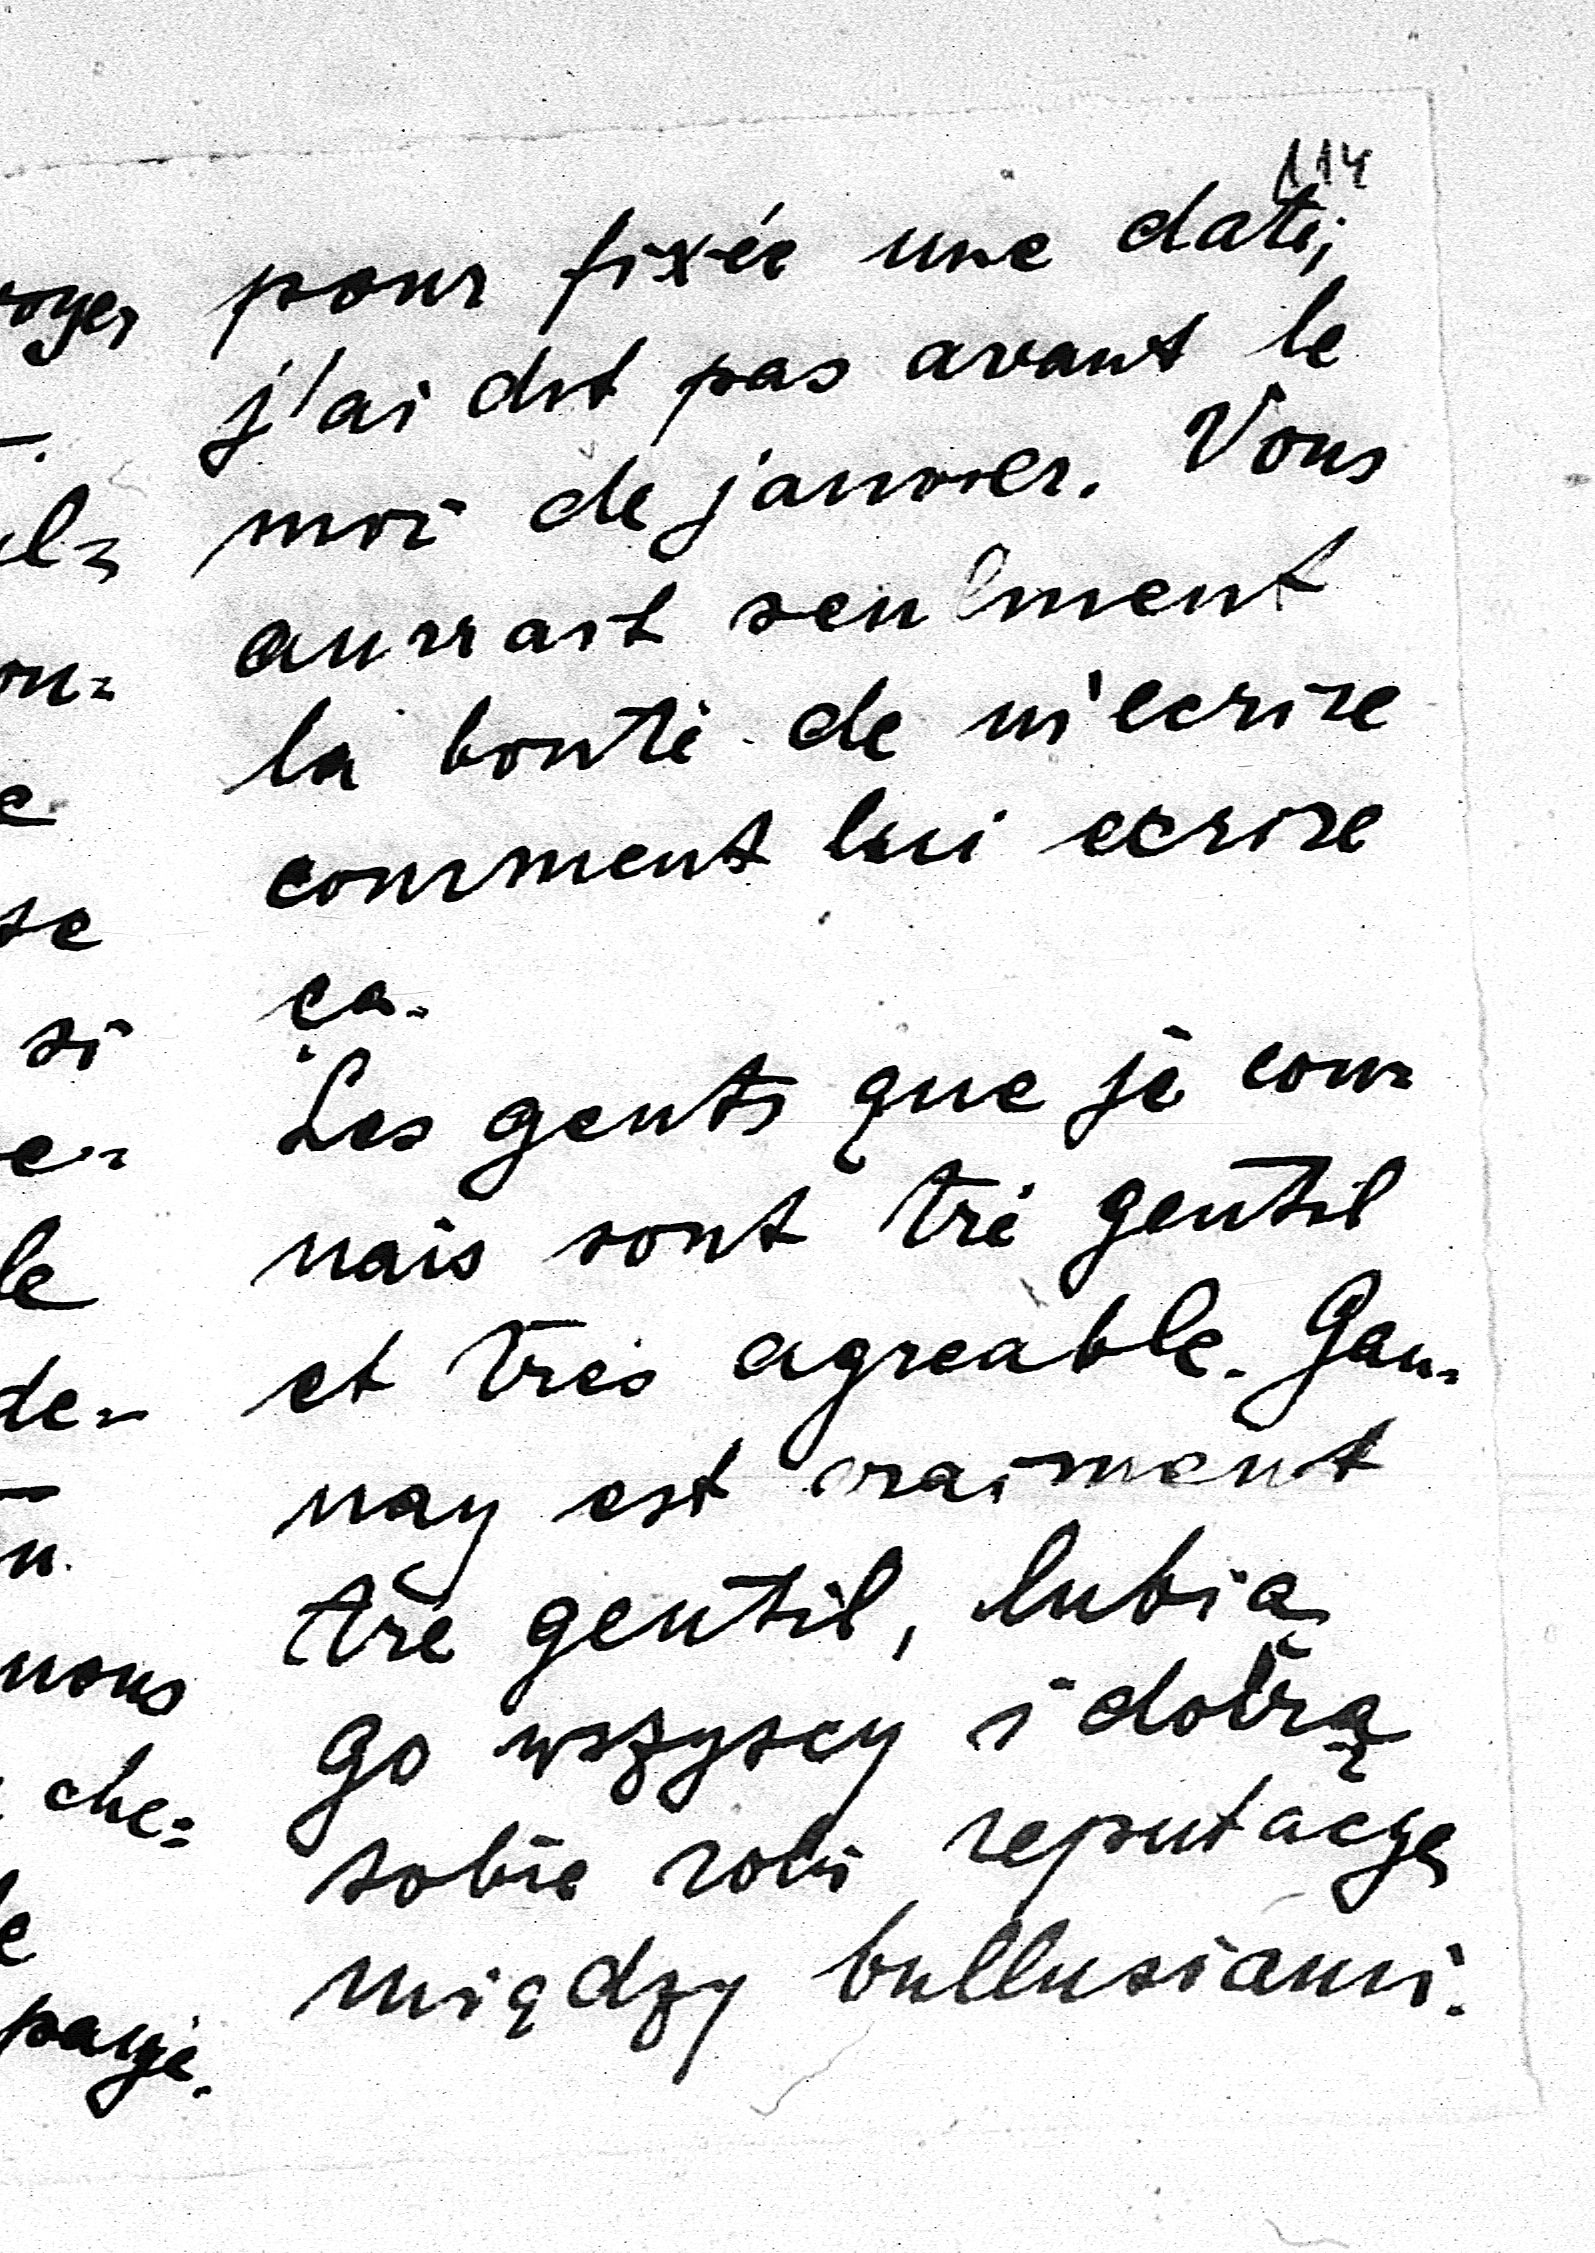 114
pour fixée une date,
j'ai dit pas avant le
moi de janvier. Vous
aurrait seulment
la bonté de m'ecrire
comment lui ecrire
ça.
Les gents que je con=
nais sont tré gentil
et très agreable. Gau=
nay est vraiment
tré gentil, lubią
go wszyscy i dobrą
sobie robi reputacyę
między bullusiami.
si
le
nous